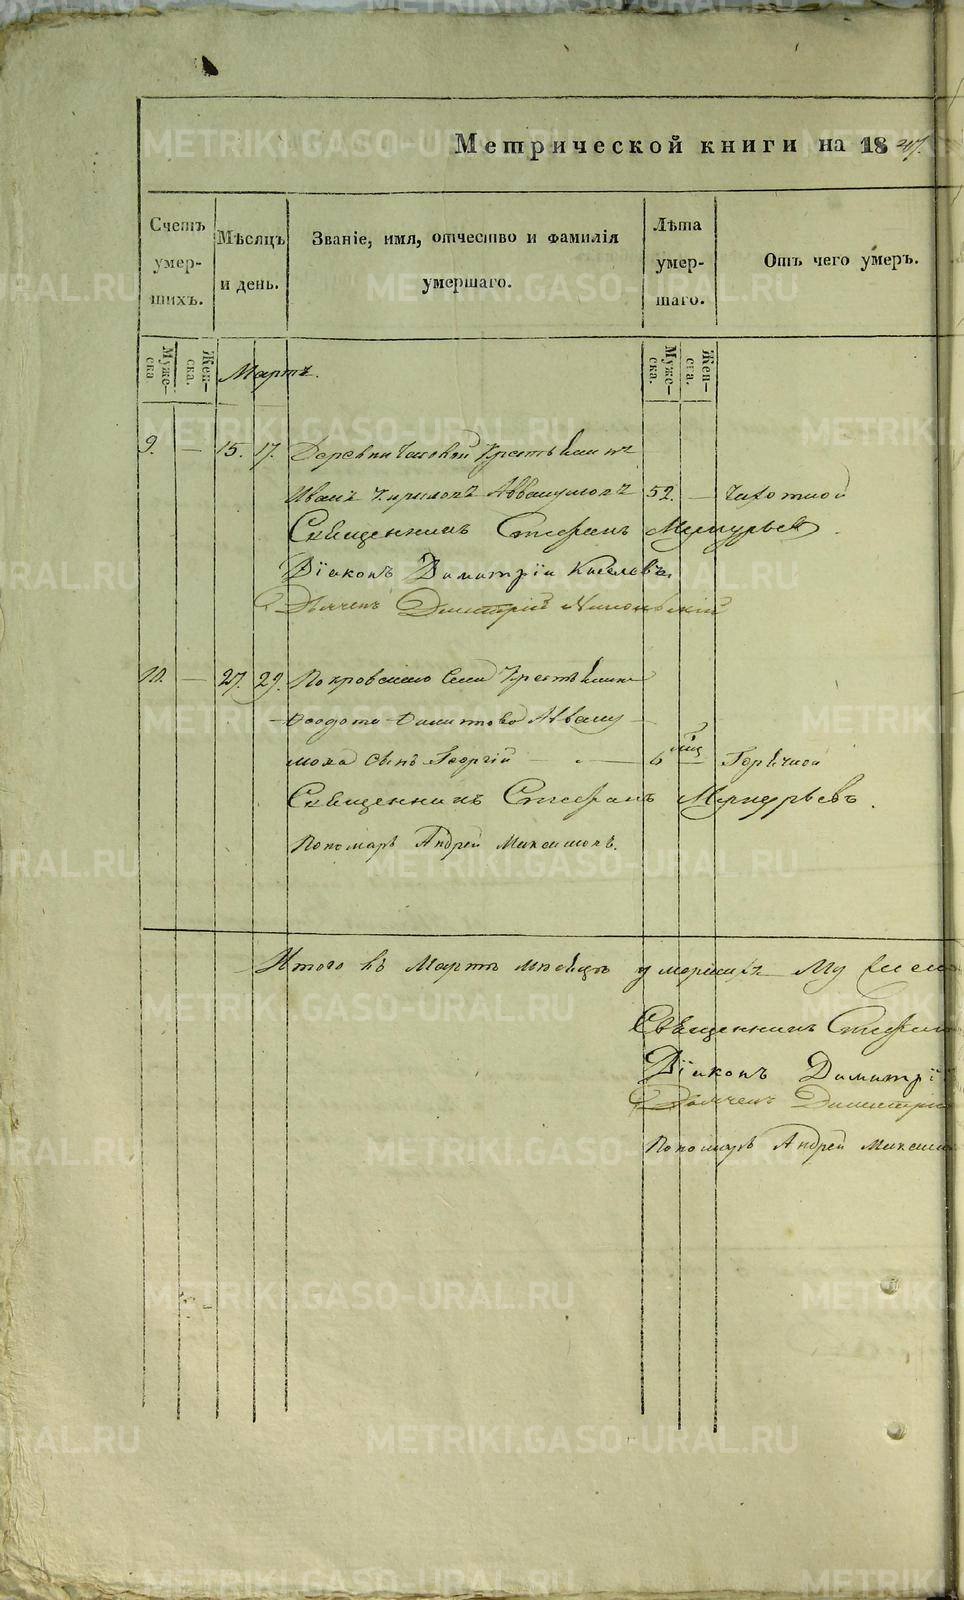 Метрической книги на 1847.
Счетъ умершихъ.
Мѣсяцъ и день.
Званіе, имя, отчество и фамилія умершаго.
Лѣта умершаго.
Отъ чего умеръ.
Мужеска
Женска.
Мартъ.
Мужеска.
Женска.
9. — 15. 17. Деревни Часовой Крестьянинъ
Иванъ Кириловъ Аввакумовъ 52. — Чахоткой
Священникъ Стефанъ Меркурьевъ.
Діаконъ Димитрій Киселевъ.
Дьячекъ Димитрій Никольскій
10. — 27. 29. Покровскаго Села Крестьянина
Ѳеодота Филиппова Авваку
мова сынъ Георгій — 6 мѣц Горячкой
Священникъ Стефанъ Меркурьевъ.
Пономарь Андрей Максимовъ.
Итого въ Мартѣ мѣсяцѣ умершихъ Му
Священникъ Стефанъ
Діаконъ Димитрі
Дьячекъ Димитрій
Пономарь Андрей Максим
METRIKI.GASO-URAL.RU